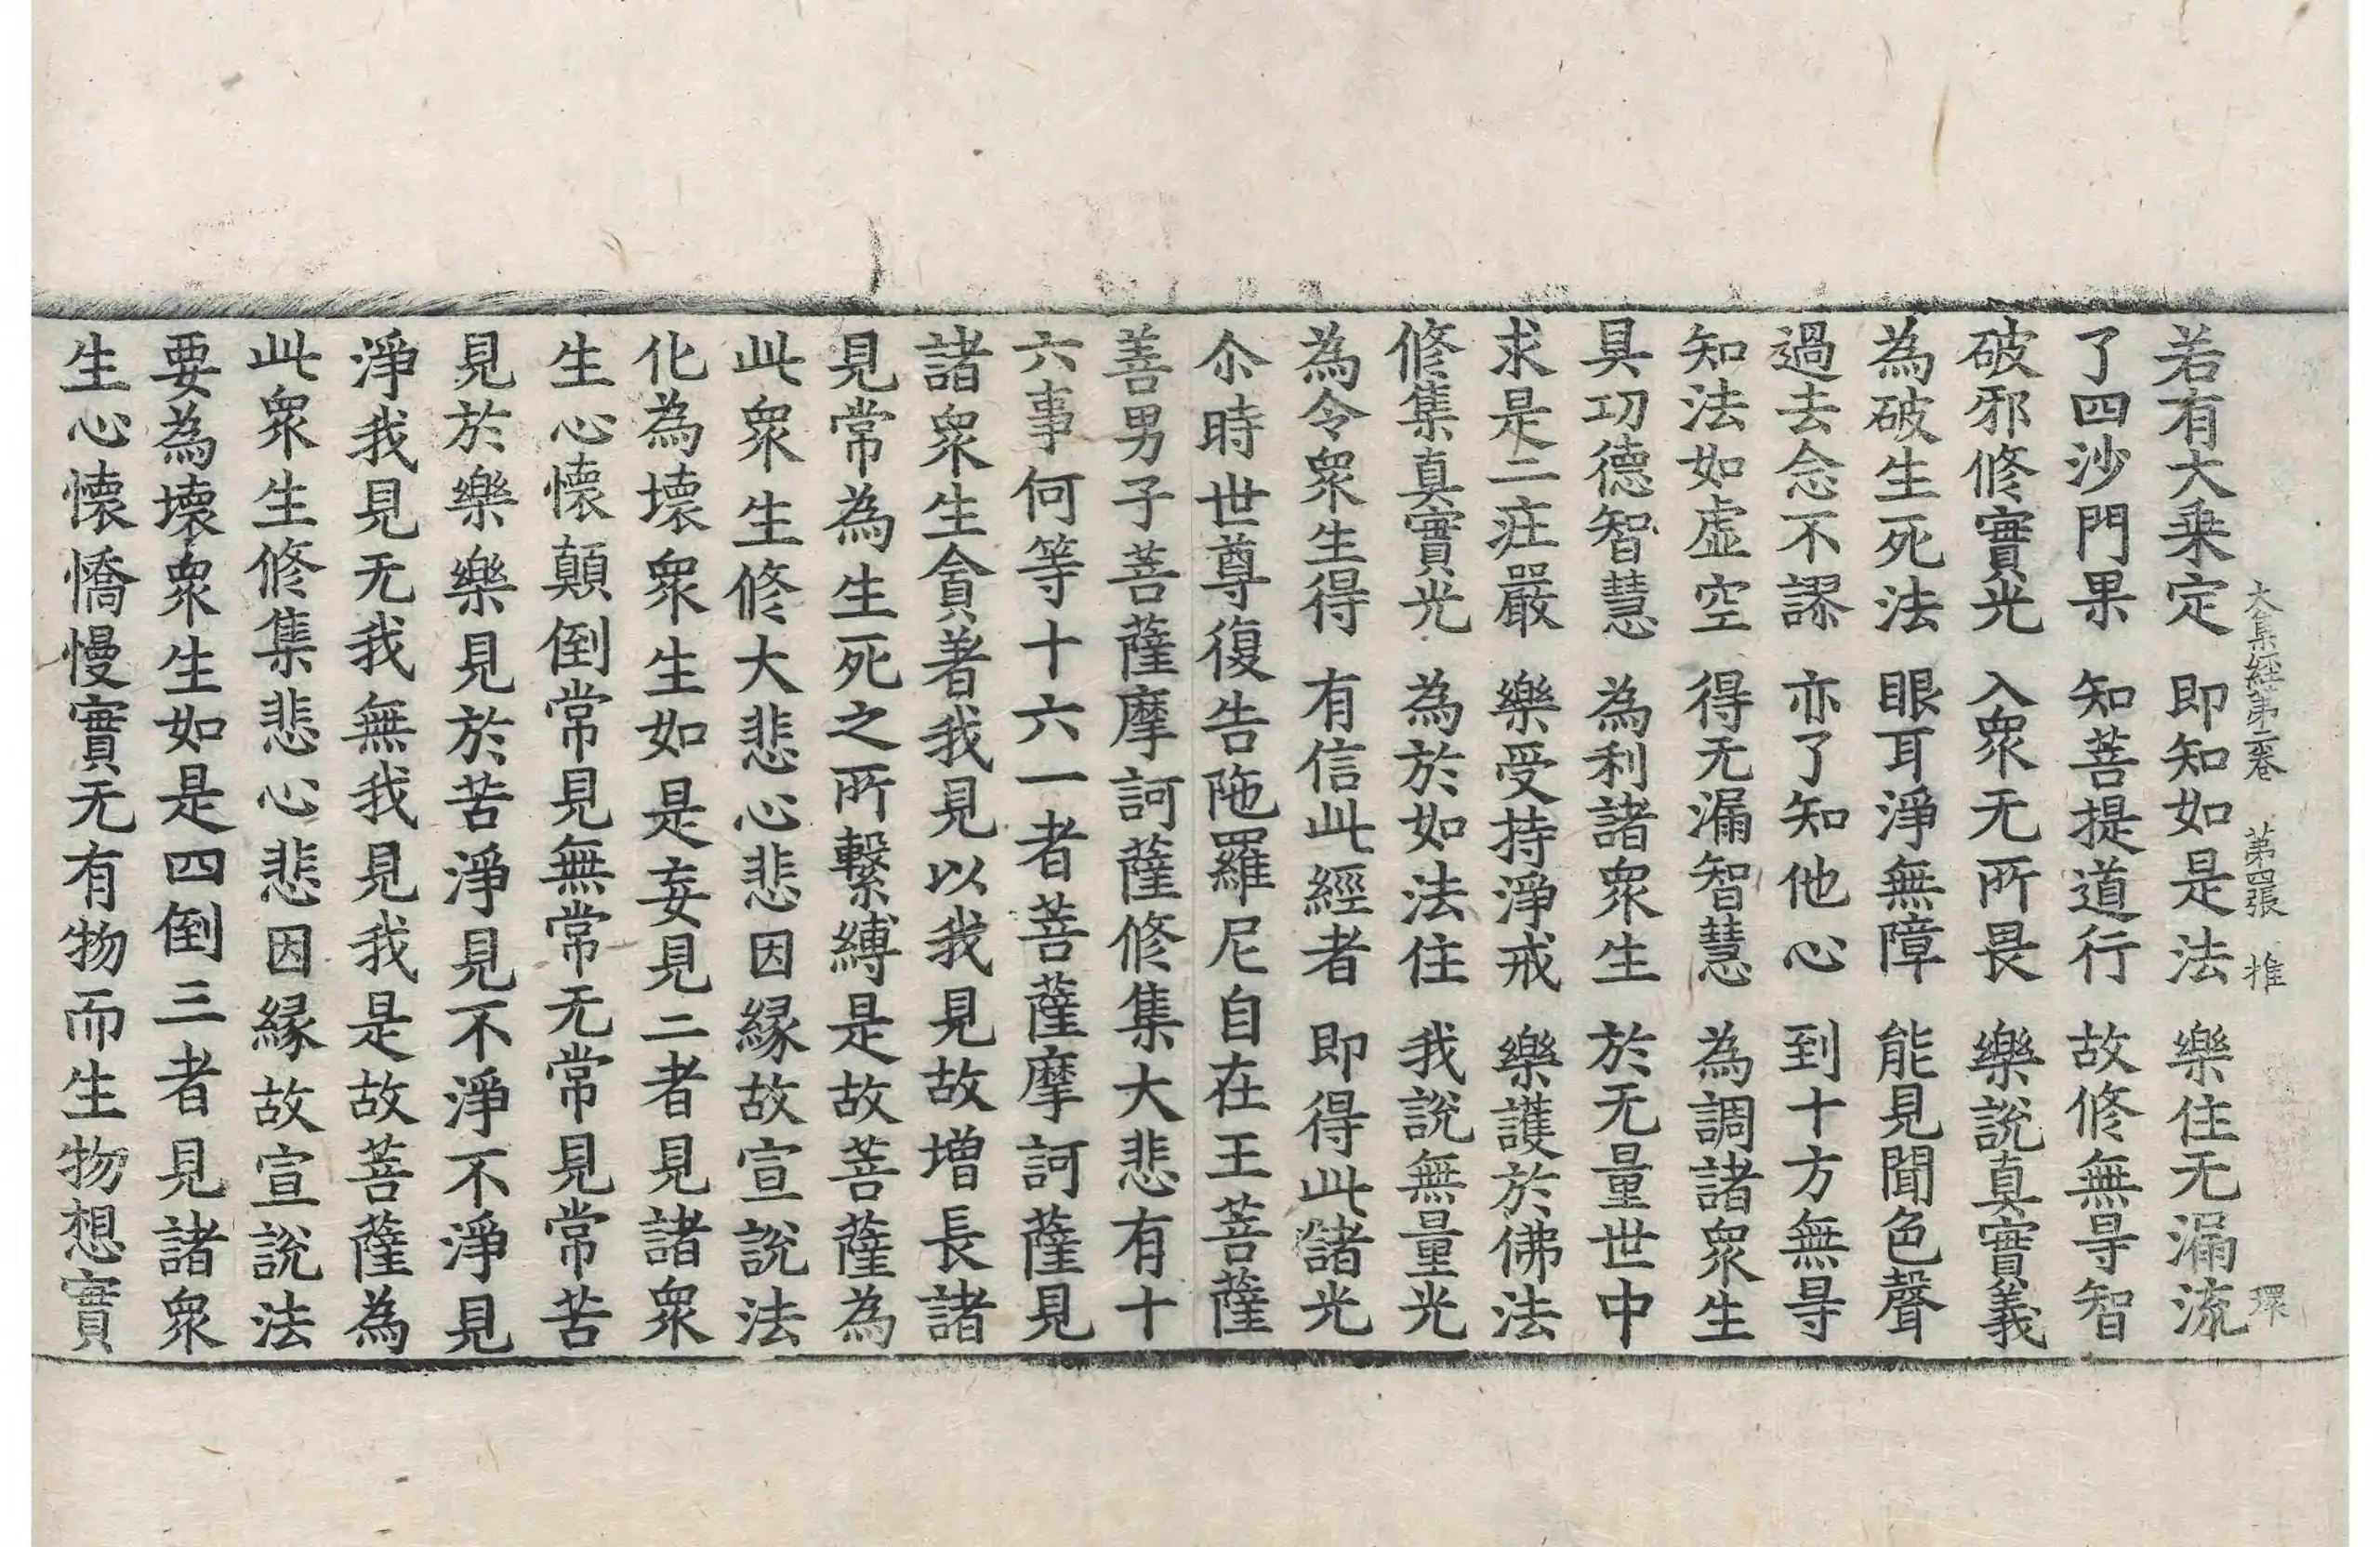 大集經第二卷 第四張 推 環
若有大乗定 即知如是法 樂住无漏流
了四沙門果 知菩提道行 故修無㝵智
破邪修實光 入衆无所畏 樂說真實義
為破生死法 眼耳淨無障 能見聞色聲
過去念不謬 亦了知他心 到十方無㝵
知法如虛空 得无漏智慧 為調諸衆生
具功德智慧 為利諸衆生 於无量世中
求是二莊嚴 樂受持淨戒 樂護於佛法
修集真實光 為於如法住 我說無量光
為令衆生得 有信此經者 即得此諸光
尒時世尊復告陁羅尼自在王菩薩
善男子菩薩摩訶薩修集大悲有十
六事何等十六一者菩薩摩訶薩見
諸衆生貪著我見以我見故增長諸
見常為生死之所繫縛是故菩薩為
此衆生修大悲心悲因緣故宣說法
化為壞衆生如是妄見二者見諸衆
生心懷顛倒常見無常无常見常苦
見於樂樂見於苦淨見不淨不淨見
淨我見无我無我見我是故菩薩為
此衆生修集悲心悲因緣故宣說法
要為壞衆生如是四倒三者見諸衆
生心懷憍慢實无有物而生物想實